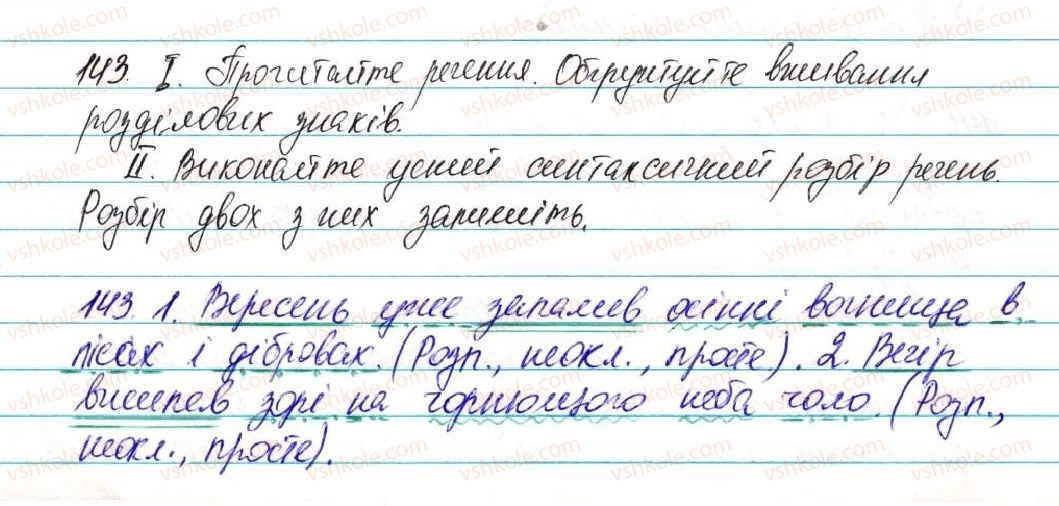 143. I. Прочитайте речення. Обґрунтуйте вживання
розділових знаків.
II. Виконайте усний синтаксичний розбір речень.
Розбір двох з них запишіть.
143. 1. Вересень уже запалив осінні вогнища в
лісах і дібровах. (Розп., неокл., просте). 2. Вечір
вишивав зорі на чорнющого неба чоло. (Розп.,
неокл., просте).